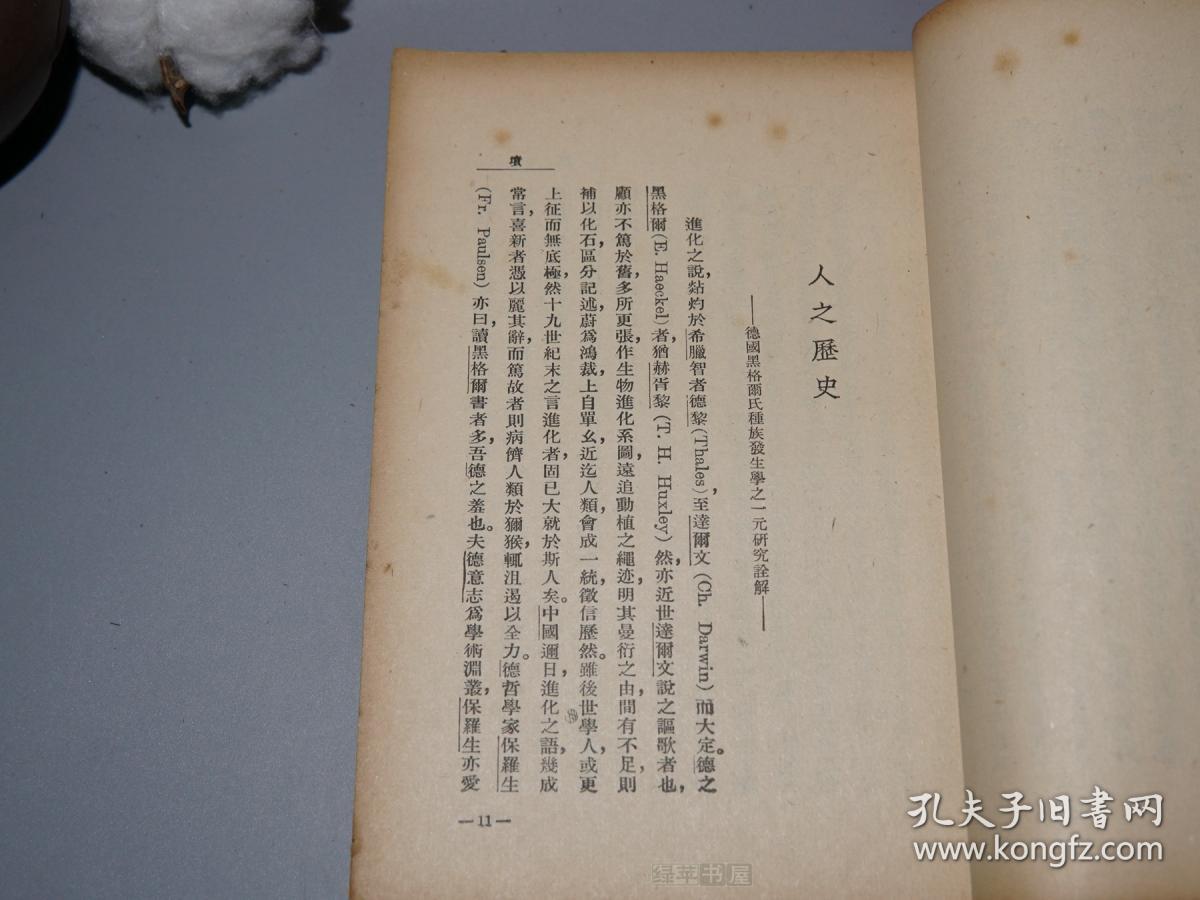 人之歷史
——德國黑格爾氏種族發生學之一元研究詮解——
進化之說，黏灼於希臘智者德黎(Thales)，至達爾文(Ch. Darwin)而大定。德之
黑格爾(E. Haeckel)者，猶赫胥黎(T. H. Huxley)然，亦近世達爾文說之謳歌者也，
顧亦不篤於舊，多所更張，作生物進化系圖，遠追動植之繩迹，明其曼衍之由，間有不足，則
補以化石，區分記述，蔚爲鴻裁，上自單幺，近迄人類，會成一統，徵信歷然。雖後世學人，或更
上征而無底極，然十九世紀末之言進化者，固已大就於斯人矣。中國邇日，進化之語，幾成
常言，喜新者憑以麗其辭，而篤故者則病儕人類於獼猴，輒沮遏以全力。德哲學家保羅生
(Fr. Paulsen)亦曰，讀黑格爾書者多，吾德之羞也。夫德意志爲學術淵叢，保羅生亦愛
墳
—11—
孔夫子旧书网
www.kongfz.com
绿苹书屋